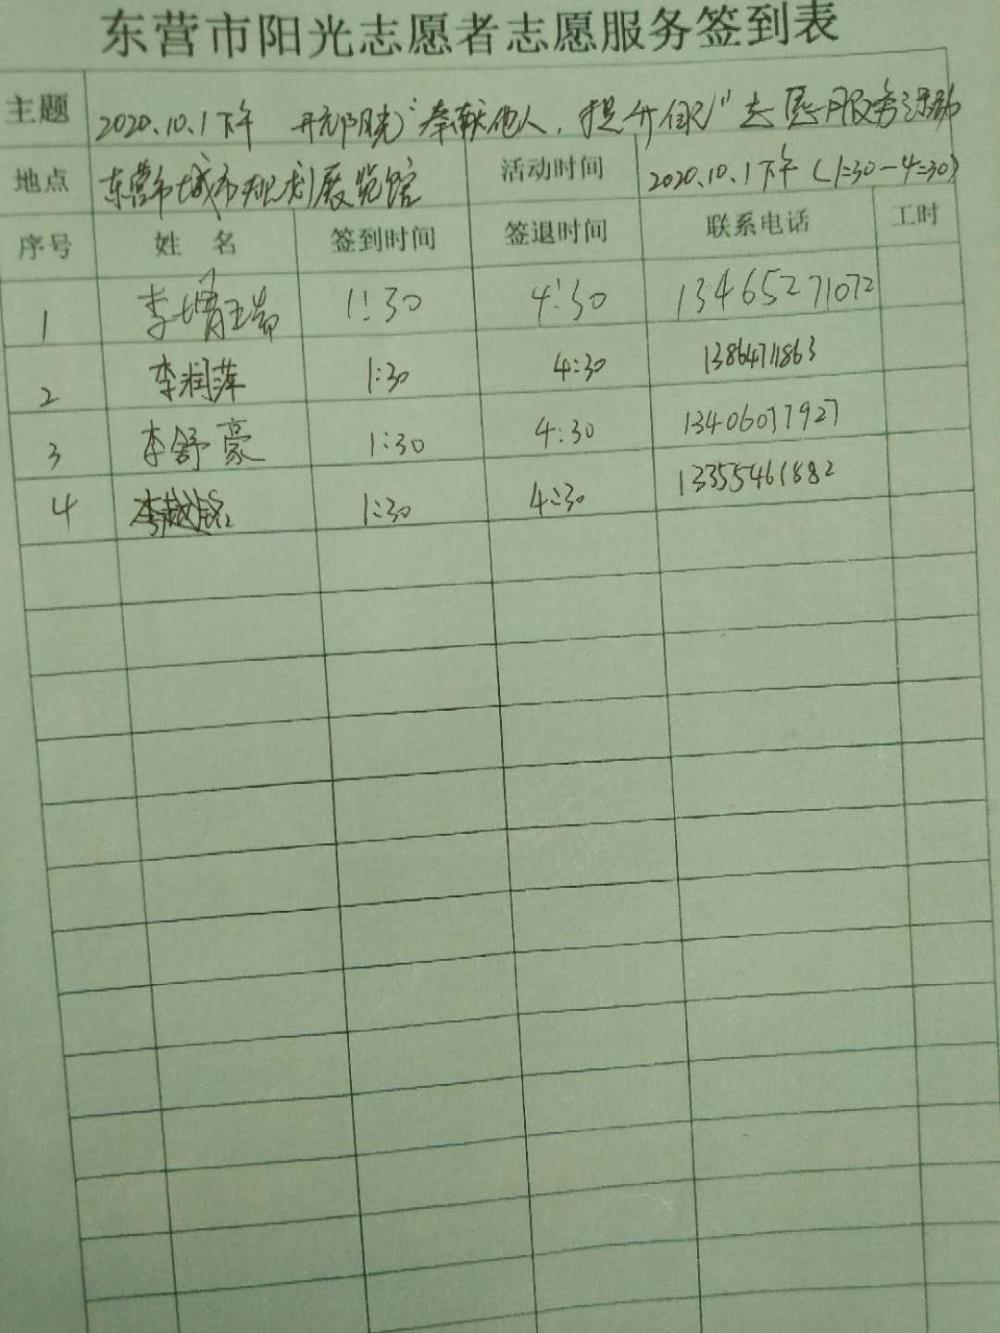 东营市阳光志愿者志愿服务签到表
主题 2020.10.1下午 阳光"奉献他人，提升自己"志愿服务活动
地点 东营市城市规划展览馆 活动时间 2020.10.1下午（1:30-4:30）
序号 姓 名 签到时间 签退时间 联系电话 工时
1 李 1:30 4:30 13465271072
2 李润萍 1:30 4:30 13864711863
3 李舒豪 1:30 4:30 13406077927
4 李越铭 1:30 4:30 13355461882